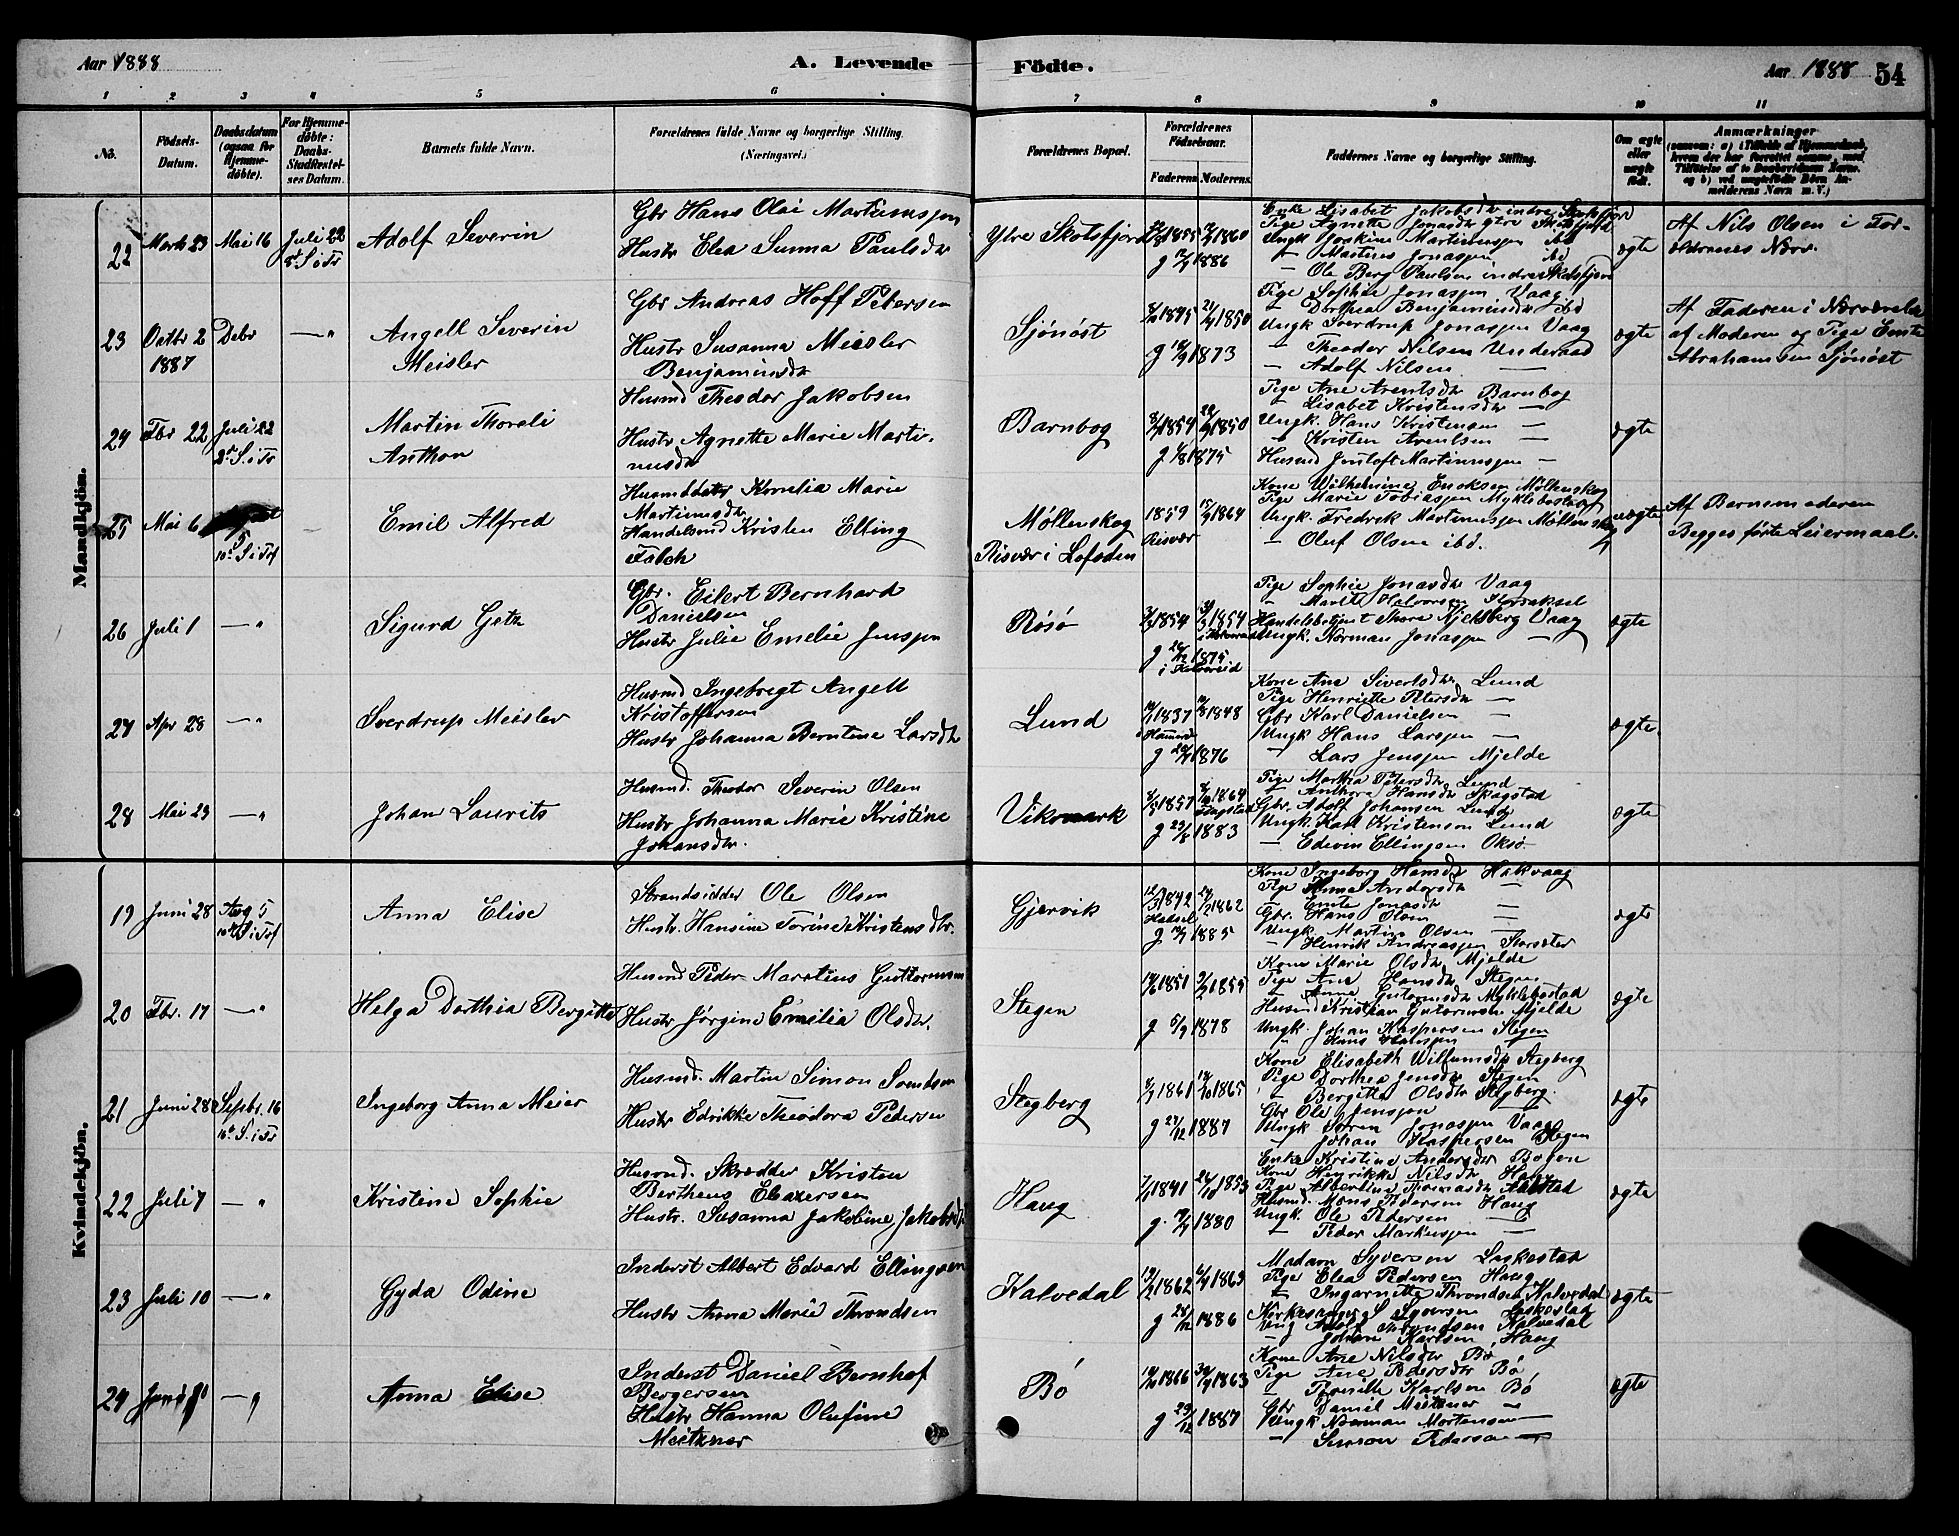 Aar 1888
A. Levende Födte.
Aar 1888 54
1 2 3 4 5 6 7 8 9 10 11
No. Födsels-Datum. Daabsdatum (ogsaa for Hjemme-döbte). For Hjemme-döbte: Daabs-Stadfæstel-ses Datum. Barnets fulde Navn. Forældrenes fulde Navne og borgerlige Stilling. (Næringsvei.) Forældrenes Bopæl. Forældrenes Födselsaar. Faderens Moderens. Faddernes Navne og borgerlige Stilling. Om ægte eller uægte födt. Anmærkninger
Mandkjön.
22 Marts 23 Mai 16 Juli 22 Adolf Severin
Gbr Hans Olai Martinussen
Hustr Elea Sunna Paulsdtr
Ytre Skotsfjord 1855 1860
g 1886
Enke Lisabet Jakobsdtr indre Skotsfjord
Pige Agnette Jonasdtr ytre Skotsfjord
- Martines Jonassen ibd
- Ole Berg Paulsen indre Skotsfjord
ægte
Af Nils Olsen i For-
ældrenes Nærv.
23 Octbr 2 1887 Debr - " Angell Severin
Meisler
Gbr Andreas Hoff Petersen
Hustr Susanna Meisler
Benjaminsdtr
Sjönöst 1845 1850
g 1873
Pige Sophie Jonassen Vaag
- Dorthea Benjaminsdtr ibd
Ungk Sverdrup Jonassen Vaag
- Theodor Nilsen Underaad
- Adolf Nilsen -
ægte
Af Faderen i Nærværelse
af Moderen og Pige Emte
Abrahamsen Sjönöst
24 Fbr 22 Juli 22 Martin Thorali
Anthon
Husmd Theodor Jakobsen
Hustr Agnette Marie Marti-
nusdtr
Barnbog 1854 1850
g 1875
Pige Ane Arentsdtr Barnbog
- Lisabet Kristensdtr -
Ungk. Hans Kristensen -
- Kristen Arentsen -
Husmd Jentoft Martinussen -
ægte
25 Mai 6 Emil Alfred
Husmddatr Kornelia Marie
Martinusdtr
Handelsmd Kristen Elling
Falch
Møllenskog
Risvær i Lofoden
1859 1864
Risvær
Kone Wilhelmine Eriksen Møllenskog
Pige Marie Tobiassen Myklebostad
Ungk. Fredrek Martinussen Møllenskog
- Oluf Olsen ibd.
uægte
Af Barnemoderen
Begges første Leiermaal.
26 Juli 1 - " Sigurd Getz
Gbr. Eilert Bernhard
Danielsen
Hustr Julie Emelie Jenssen
Rösö 1854 1854
g 1875
Pige Sophie Jonasdtr Vaag
Ungk. Norman Jonassen -
ægte
27 Apr 28 - " Sverdrup Meisler
Husmd Ingebregt Angell
Kristoffersen
Hustr Johanna Berntine Larsdtr
Lund 1837 1848
g 1876
Kone Ane Sivertsdtr Lund
Pige Henriette Petersdtr -
Gbr Karl Danielsen -
Ungk Hans Larssen -
- Lars Jenssen Mjelde
ægte.
28 Mai 23 - " Johan Laurits
Husmd. Theodor Severin Olsen
Hustr Johanna Marie Kristine
Johansdtr.
Vikmark 1857 1864
g 1883
Pige Martha Petersdtr Lund
- Anthora Hansdtr Skagstad
Gbr. Adolf Johansen Lund
Ungk. Karl Kristensen Lund
- Edevin Ellingsen Oksö
ægte
Kvindekjön.
19 Juni 28 Aug 5 Anna Elise
Strandsidder Ole Olsen
Hustr. Hansine Torine Kristensdtr.
Gjervik 1842 1862
g 1885
Kone Ingeborg Hansdtr Hakvaag
Pige Anna Andersdtr -
- Emte Jonasdtr -
Gbr. Hans Olsen -
Ungk. Martin Olsen -
- Henrik Andreassen Storsæter
ægte
20 Fbr. 17 - " Helga Dorthia Bergitte
Husmd Peder Martius Guttormsen
Hustr Jørgine Emilia Olsdtr.
Stegen 1851 1855
g 5/9 1878
Kone Marie Olsdtr Mjelde
Pige Ane Hansdtr Stegen
- Anne Gutormsdtr Myklebostad
Husmd Kristian Gutormsen Mjelde
Ungk. Johan Kaspersen Stegen
- Hans Hanssen
ægte
21 Juni 28 Septbr. 16 Ingeborg Anna Meier
Husmd. Martin Simon Svendsen
Hustr Edrikke Theodora Pedersen
Stegberg 1861 1865
g 1887
Kone Elisabeth Wilfumsdtr Stegberg
Pige Dorthea Jensdtr Stegen
- Bergitte Olsdtr Stegberg
Gbr Ole Jenssen -
Ungk Søren Jonassen Vaag
- Johan Kaspersen Stegen
ægte
22 Juli 7 - " Kristine Sophie
Husmd. Skrædder Kristen
Berthens Eleasersen
Hustr. Susanna Jakobine Jakobsdtr
Haug 1841 1853
g. 1880
Enke Kristine Andersdtr Bogen
Kone Henrikke Nilsdtr Haug
Husmd. Mons Pedersen Haug
Ungk. Ole Pedersen -
- Peder Markussen -
ægte
23 Juli 10 - " Gyda Odine
Inderst Albert Edvard Ellingsen
Hustr Anna Marie Throndsen
Kalvedal 1862 1863
g 1886
Madam Syversen Laskestad
Pige Elea Pedersen Haug
- Ingarnitte Throndsen Kalvedal
Kirkesanger S. Syversen Laskestad
Ung Adolf Throndsen Kalvedal
- Johan Karlsen Haug
ægte
24 - " Anna Elise
Inderst Daniel Bernhof
Bergersen
Hustr Hanna Olufine
Meitzner
Bö 1866 1863
g 1887
Kone Ane Nilsdtr Bö
Pige Ane Pedersdtr Bö
- Pernille Karlsen Bö
Gbr Daniel Meitzner -
Ungk Norman Mortensen -
- Simon Pedersen -
ægte